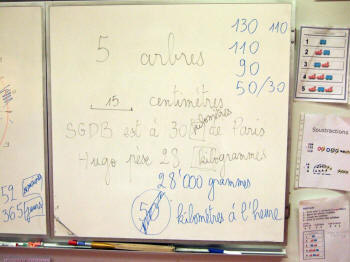 130 110
5 arbres
110
90
50/30
15 centimètres
kilomètres
SGDB est à 30 de Paris
Hugo pèse 28 kilogrammes
28'000 grammes
52 semaines
50 kilomètres à l'heure
365 jours
1
2
3
4
5
Soustractions